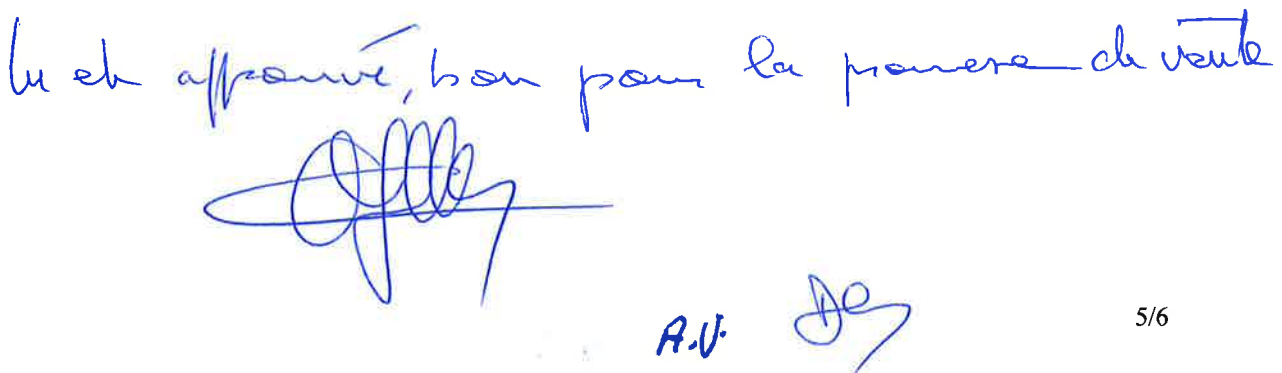 lu et approuvé, bon pour la promesse de vente
A.V.
5/6